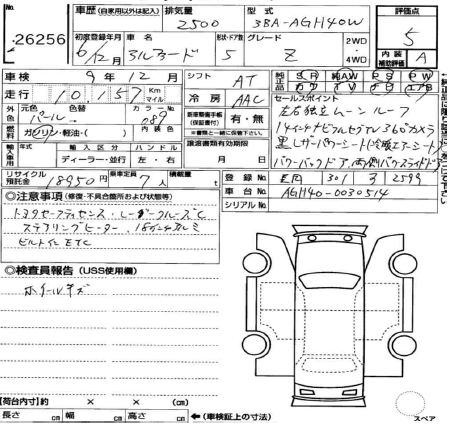 No. 26256
車歴 (自家用以外は記入) 排気量 型式 評価点
2500 3BA-AGH40W 5
初度登録年月 車名 形状・ドア数 グレード 2WD ・ 4WD
6/12月 アルファード 5 Z
内装補助評価 A
車検 9年12月 シフト AT 純正品 SR 純AW PS PW
走行 10,157 Km マイル 冷房 AAC カワ TV ナビ エアB
外色 元色 色替 カラーNo. 新車整備手帳(保証書付) 有・無
パール 089 ※書類と一緒に保管下さい。
燃料 ガソリン・軽油・( ) 内装色 譲渡書類有効期限
輸入車 年式 輸入区分 ハンドル 月 日
ディーラー・並行 左・右
セールスポイント
左右独立ムーンルーフ
14インチナビフルセグTV 360カメラ
黒レザーパワーシート 冷暖エアーシート
パワーバックドア,両側パワースライドドア
リサイクル預託金 18950円 乗車定員 7人 積載量 t
登録No. 長岡 301 3 2599
車台No. AGH40-0030514
シリアルNo.
◎注意事項 (修復・不具合箇所および状態等)
トヨタセーフティセンス・レーダークルーズC
ステアリングヒーター・18インチアルミ
ビルトインETC
◎検査員報告 (USS使用欄)
ホイールキズ
【荷台内寸】約 × × (cm)
長さ cm 幅 cm 高さ cm ←(車検証上の寸法)
スペア